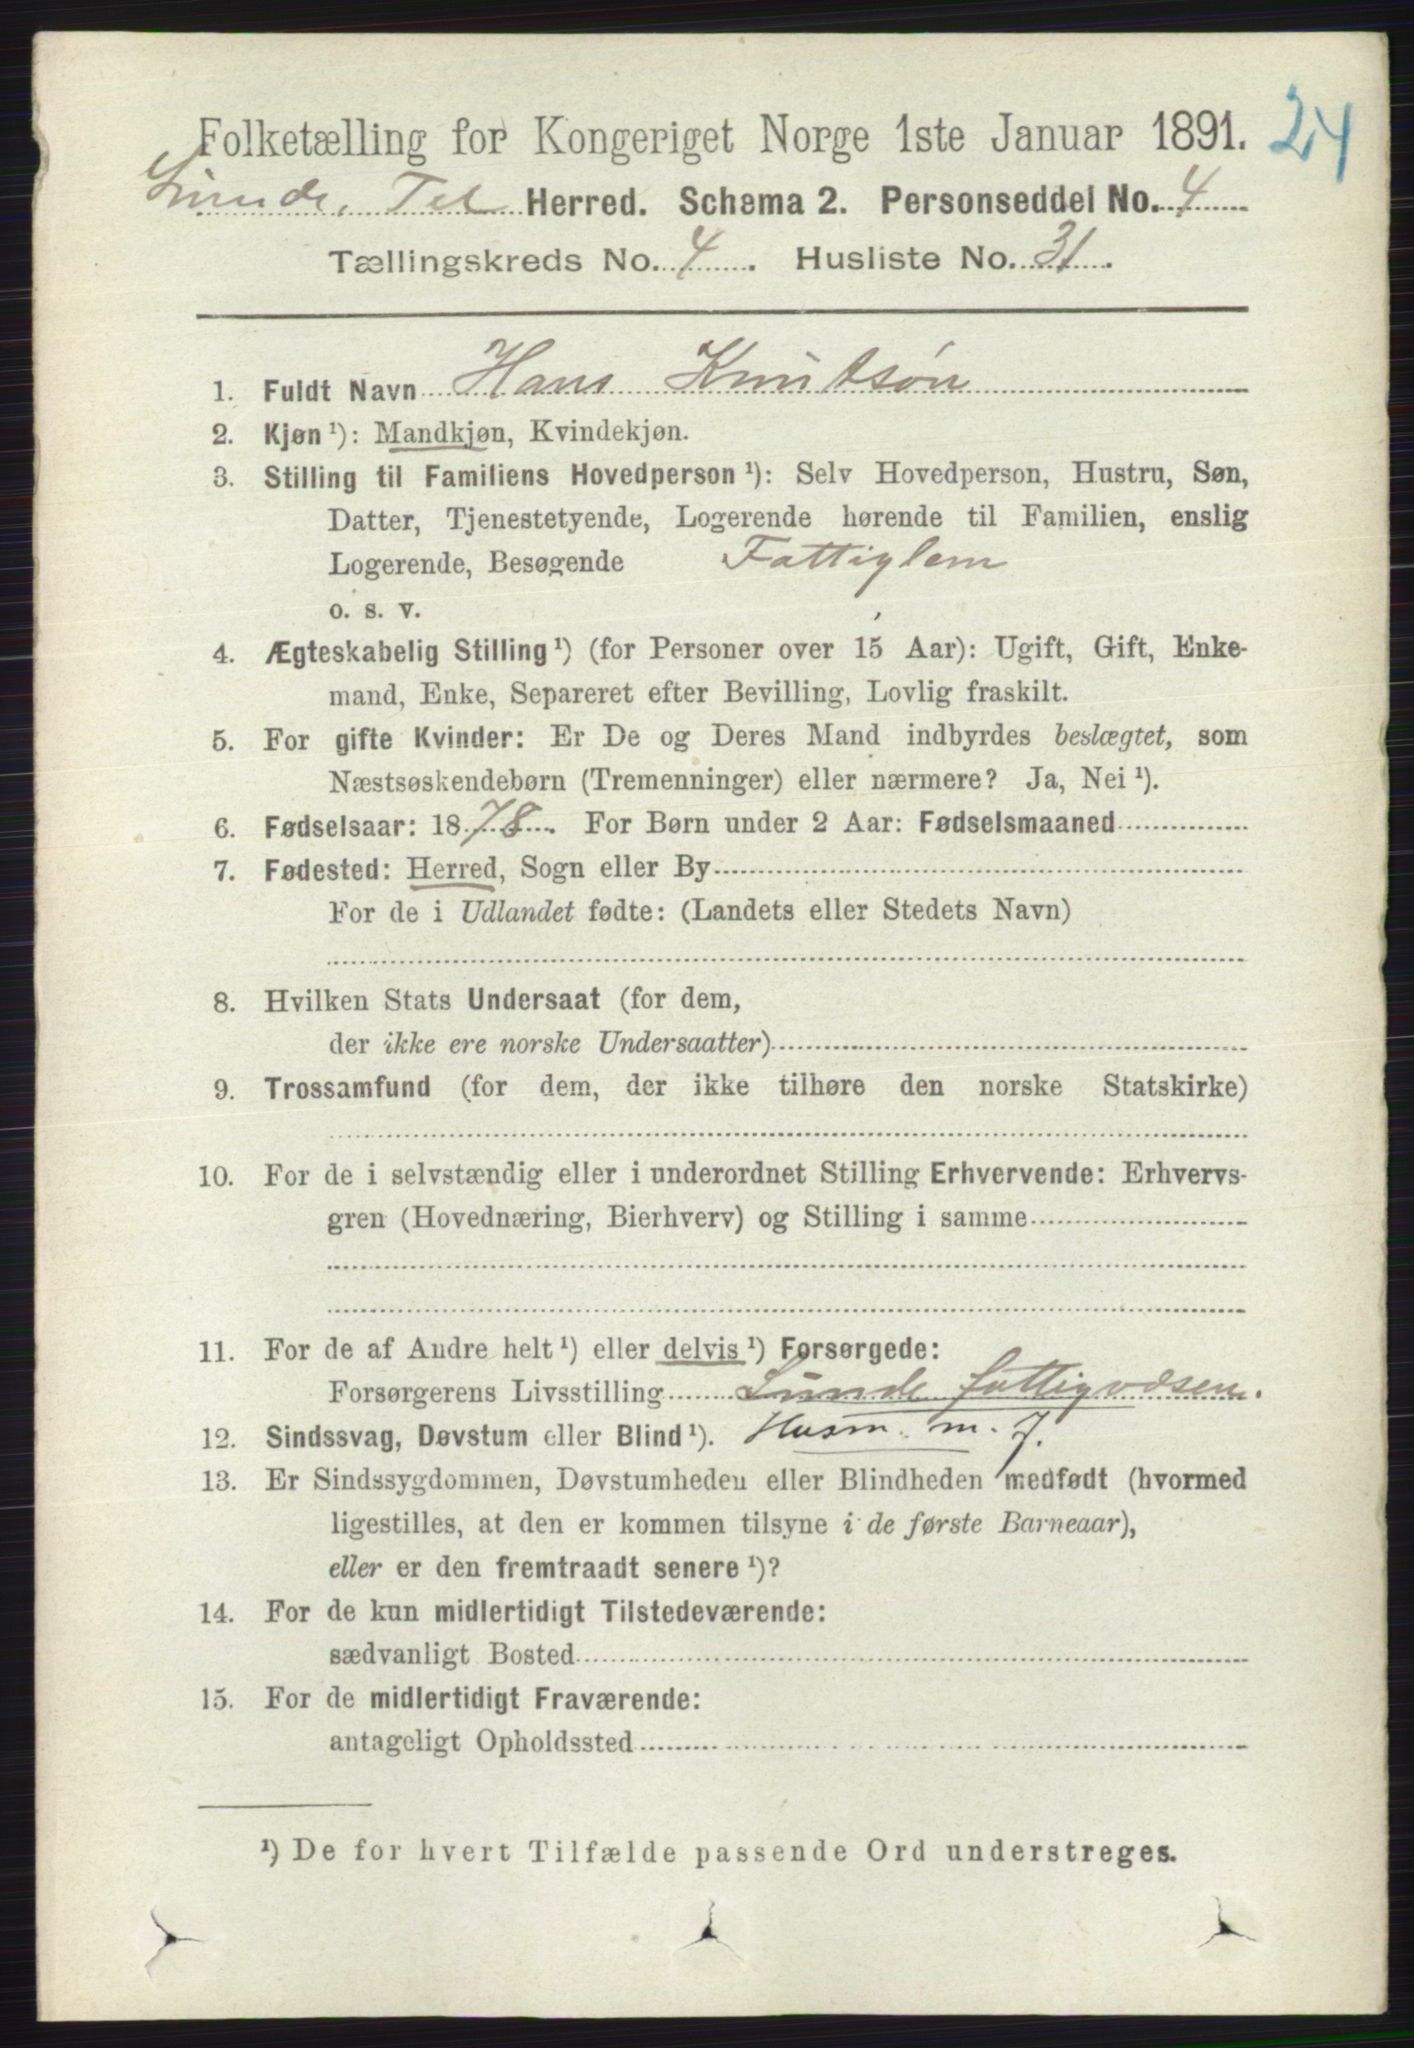 Folketælling for Kongeriget Norge 1ste Januar 1891. 24
Lunde, Tel Herred. Schema 2. Personseddel No. 4
Tællingskreds No. 4. Husliste No. 31.
1. Fuldt Navn Hans Knutsøn
2. Kjøn ¹): Mandkjøn, Kvindekjøn.
3. Stilling til Familiens Hovedperson ¹): Selv Hovedperson, Hustru, Søn,
Datter, Tjenestetyende, Logerende hørende til Familien, enslig
Logerende, Besøgende Fattiglem
o. s. v.
4. Ægteskabelig Stilling ¹) (for Personer over 15 Aar): Ugift, Gift, Enke-
mand, Enke, Separeret efter Bevilling, Lovlig fraskilt.
5. For gifte Kvinder: Er De og Deres Mand indbyrdes beslægtet, som
Næstsøskendebørn (Tremenninger) eller nærmere? Ja, Nei ¹).
6. Fødselsaar: 1878. For Børn under 2 Aar: Fødselsmaaned
7. Fødested: Herred, Sogn eller By
For de i Udlandet fødte: (Landets eller Stedets Navn)
8. Hvilken Stats Undersaat (for dem,
der ikke ere norske Undersaatter)
9. Trossamfund (for dem, der ikke tilhøre den norske Statskirke)
10. For de i selvstændig eller i underordnet Stilling Erhvervende: Erhvervs-
gren (Hovednæring, Bierhverv) og Stilling i samme
11. For de af Andre helt ¹) eller delvis ¹) Forsørgede:
Forsørgerens Livsstilling Lunde fattigvæsen.
12. Sindssvag, Døvstum eller Blind ¹). Husm. m. J.
13. Er Sindssygdommen, Døvstumheden eller Blindheden medfødt (hvormed
ligestilles, at den er kommen tilsyne i de første Barneaar),
eller er den fremtraadt senere ¹)?
14. For de kun midlertidigt Tilstedeværende:
sædvanligt Bosted
15. For de midlertidigt Fraværende:
antageligt Opholdssted
¹) De for hvert Tilfælde passende Ord understreges.